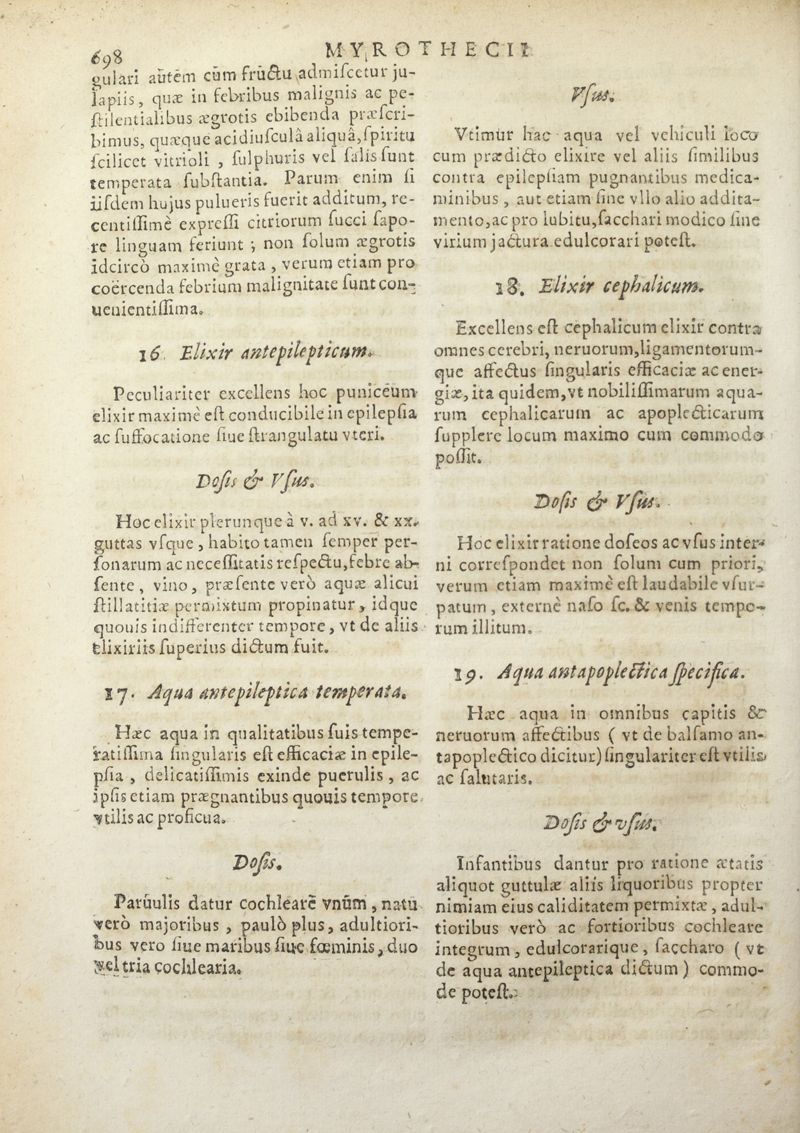 698
MYROTHECII
gulari autem cùm fructu admiſcetur ju-
lapiis, quæ in febribus malignis ac pe-
ſtilentialibus ægrotis ebibenda præſcri-
bimus, quæque acidiuſculâ aliquâ, ſpiritu
ſcilicet vitrioli , ſulphuris vel ſalis ſunt
temperata ſubſtantia. Parum enim ſi
iiſdem hujus pulueris fuerit additum, re-
centiſſimè expreſſi citriorum ſucci ſapo-
re linguam feriunt ; non ſolum ægrotis
idcircò maximè grata , verum etiam pro
coërcenda febrium malignitate ſunt con-
uenientiſſima.
16. Elixir antepilepticum.
Peculiariter excellens hoc puniceum
elixir maximè eſt conducibile in epilepſia
ac ſuffocatione ſiue ſtrangulatu vteri.
Doſis & Vſus.
Hoc elixir plerunque à v. ad xv. & xx.
guttas vſque , habito tamen ſemper per-
ſonarum ac neceſſitatis reſpectu, febre ab-
ſente , vino, præſente verò aquæ alicui
ſtillatitiæ permixtum propinatur , idque
quouis indifferenter tempore, vt de aliis
elixiriis ſuperius dictum fuit.
17. Aqua antepileptica temperata.
Hæc aqua in qualitatibus ſuis tempe-
ratiſſima ſingularis eſt efficaciæ in epile-
pſia , delicatiſſimis exinde puerulis , ac
ipſis etiam prægnantibus quouis tempore
vtilis ac proficua.
Doſis.
Paruulis datur cochleare vnum , natu
verò majoribus , paulò plus, adultiori-
bus vero ſiue maribus ſiue fœminis, duo
vel tria cochlearia.
Vſus.
Vtimur hac aqua vel vehiculi loco
cum prædicto elixire vel aliis ſimilibus
contra epilepſiam pugnantibus medica-
minibus , aut etiam ſine vllo alio addita-
mento, ac pro lubitu, ſacchari modico ſine
virium jactura edulcorari poteſt.
18. Elixir cephalicum.
Excellens eſt cephalicum elixir contra
omnes cerebri, neruorum, ligamentorum-
que affectus ſingularis efficaciæ ac ener-
giæ, ita quidem, vt nobiliſſimarum aqua-
rum cephalicarum ac apoplecticarum
ſupplere locum maximo cum commodo
poſſit.
Doſis & Vſus.
Hoc elixir ratione doſeos ac vſus inter-
ni correſpondet non ſolum cum priori,
verum etiam maximè eſt laudabile vſur-
patum , externè naſo ſc. & venis tempo-
rum illitum.
19. Aqua antapoplectica ſpecifica.
Hæc aqua in omnibus capitis &
neruorum affectibus ( vt de balſamo an-
tapoplectico dicitur) ſingulariter eſt vtilis
ac ſalutaris.
Doſis & vſus.
Infantibus dantur pro ratione ætatis
aliquot guttulæ aliis liquoribus propter
nimiam eius caliditatem permixtæ , adul-
tioribus verò ac fortioribus cochleare
integrum , edulcorarique , ſaccharo ( vt
de aqua antepileptica dictum ) commo-
de poteſt.